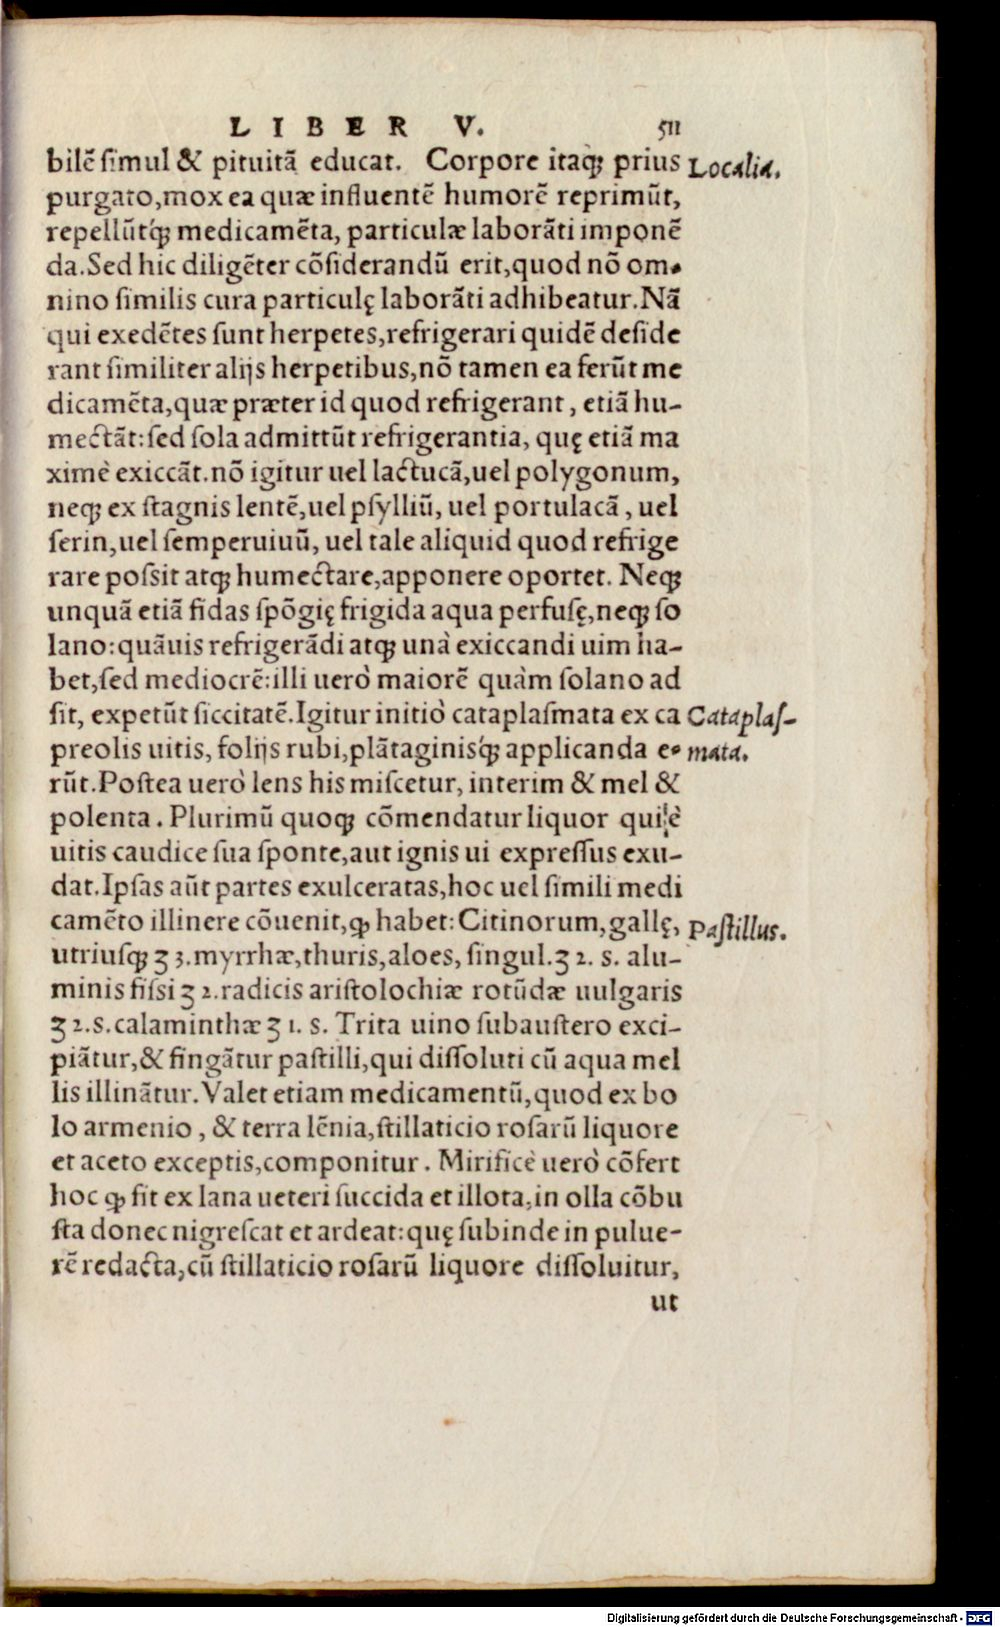 LIBER V. 511
bilē simul & pituitā educat. Corpore itaq́; prius
Localia.
purgato,mox ea quæ influentē humorē reprimūt,
repellūtq́; medicamēta, particulæ laborāti imponē
da.Sed hic diligēter cōsiderandū erit,quod nō om-
nino similis cura particulę laborāti adhibeatur.Nā
qui exedētes sunt herpetes,refrigerari quidē deside
rant similiter alijs herpetibus,nō tamen ea ferūt me
dicamēta,quæ præter id quod refrigerant, etiā hu-
mectāt:sed sola admittūt refrigerantia, quę etiā ma
ximè exiccāt.nō igitur uel lactucā,uel polygonum,
neq; ex stagnis lentē,uel psylliū, uel portulacā, uel
serin,uel semperuiuū, uel tale aliquid quod refrige
rare possit atq; humectare,apponere oportet. Neq;
unquā etiā fidas spōgię frigida aqua perfusę,neq; so
lano:quāuis refrigerādi atq; unà exiccandi uim ha-
bet,sed mediocrē:illi uerò maiorē quàm solano ad
sit, expetūt siccitatē.Igitur initiò cataplasmata ex ca
Cataplas-
preolis uitis, folijs rubi,plātaginisq́; applicanda e-
mata.
rūt.Postea uerò lens his miscetur, interim & mel &
polenta. Plurimū quoq; cōmendatur liquor qui è
uitis caudice sua sponte,aut ignis ui expressus exu-
dat.Ipsas aūt partes exulceratas,hoc uel simili medi
camēto illinere cōuenit,ꝙ habet:Citinorum,gallę,
Pastillus.
utriusq; ʒ 3.myrrhæ,thuris,aloes, singul.ʒ 2. s. alu-
minis fissi ʒ 2.radicis aristolochiæ rotūdæ uulgaris
ʒ 2.s.calaminthæ ʒ 1. s. Trita uino subaustero exci-
piātur,& fingātur pastilli,qui dissoluti cū aqua mel
lis illinātur.Valet etiam medicamentū,quod ex bo
lo armenio, & terra lēnia,stillaticio rosarū liquore
et aceto exceptis,componitur. Mirificè uerò cōfert
hoc ꝙ fit ex lana ueteri succida et illota,in olla cōbu
sta donec nigrescat et ardeat:quę subinde in pulue-
rē redacta,cū stillaticio rosarū liquore dissoluitur,
ut
Digitalisierung gefördert durch die Deutsche Forschungsgemeinschaft - DFG